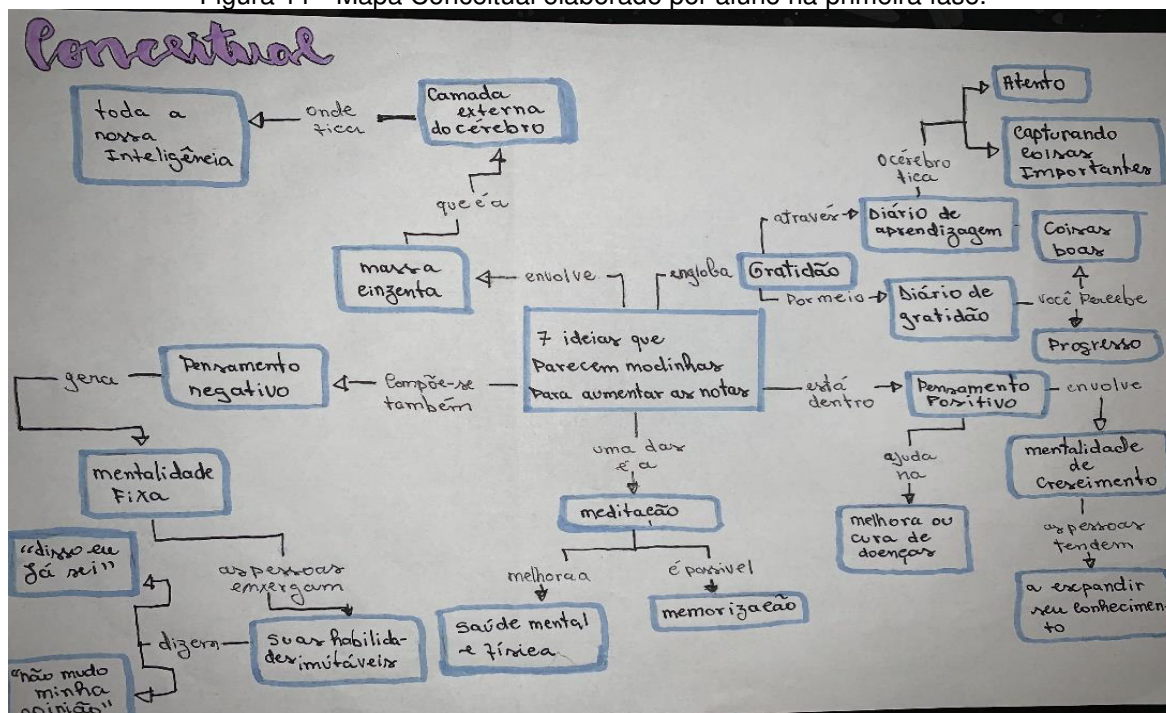 Figura 11 - Mapa Conceitual elaborado por aluno na primeira fase.
Conceitual
toda a
nossa
Inteligência
onde
fica
Camada
externa
do cérebro
que é a
massa
cinzenta
envolve
7 ideias que
Parecem modinhas
Para aumentar as notas
engloba
Gratidão
através
Diário de
aprendizagem
o cérebro
fica
Atento
Capturando
coisas
Importantes
Por meio
Diário de
gratidão
você Percebe
Coisas
boas
Progresso
está
dentro
Pensamento
Positivo
envolve
mentalidade
de
Crescimento
as pessoas
tendem
a expandir
seu conhecimen-
to
ajuda
na
melhora ou
cura de
doenças
uma das
é a
meditação
melhora a
saúde mental
e física
é possivel
memorização
Compõe-se
também
Pensamento
negativo
gera
mentalidade
Fixa
as pessoas
enxergam
suas habilida-
des imutáveis
dizem
"disso eu
Já sei"
"não mudo
minha
opinião"